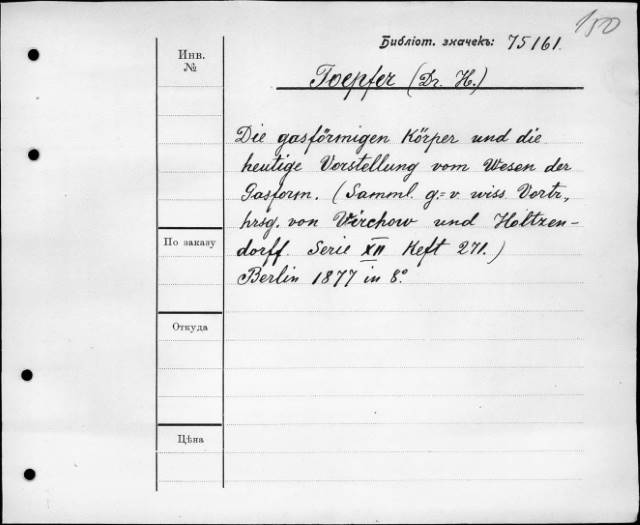 150
Библіот. значекъ: 75161.
Инв.
№
Toepfer (Dr. H.)
Die gasförmigen Körper und die
heutige Vorstellung vom Wesen der
Gasform. (Samml. g.=v. wiss. Vortr.,
hrsg. von Virchow und Holtzen-
dorff. Serie XII Heft 271.)
Berlin 1877 in 8°.
По заказу
Откуда
Цѣна